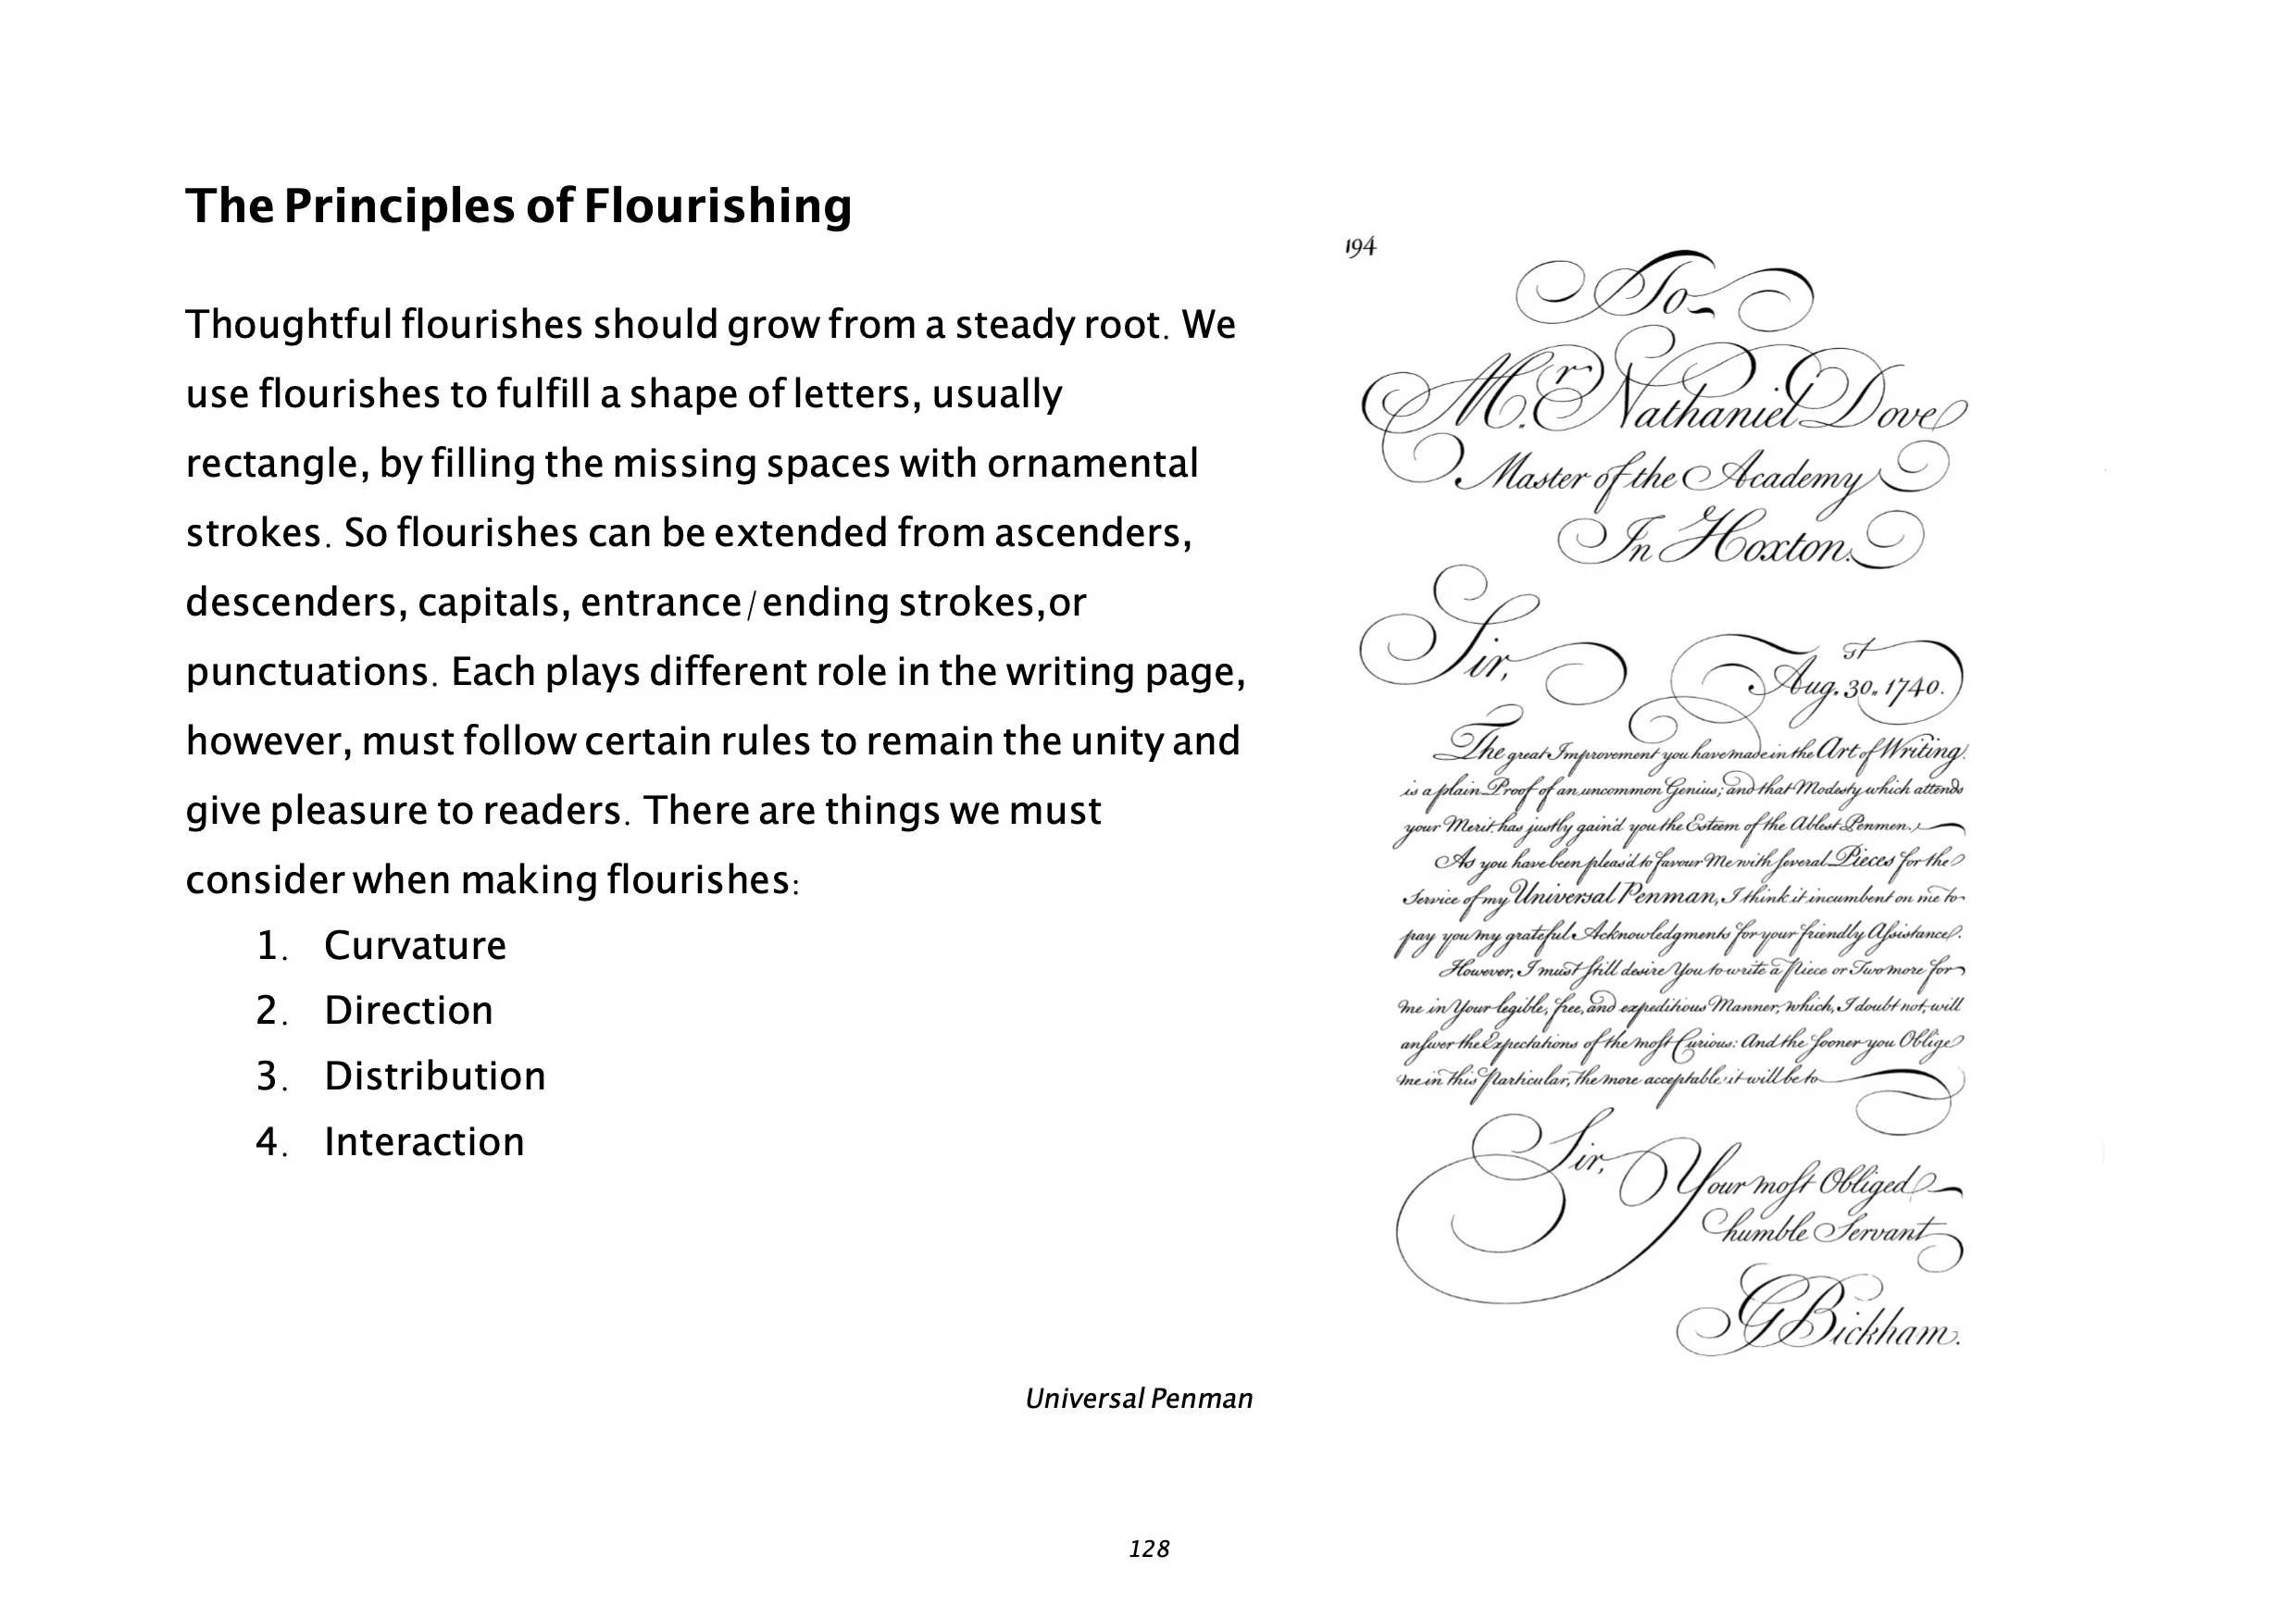 The Principles of Flourishing
Thoughtful flourishes should grow from a steady root. We
use flourishes to fulfill a shape of letters, usually
rectangle, by filling the missing spaces with ornamental
strokes. So flourishes can be extended from ascenders,
descenders, capitals, entrance/ending strokes,or
punctuations. Each plays different role in the writing page,
however, must follow certain rules to remain the unity and
give pleasure to readers. There are things we must
consider when making flourishes:
1. Curvature
2. Direction
3. Distribution
4. Interaction
194
To
Mr. Nathaniel Dove
Master of the Academy
In Hoxton.
Sir,
Aug. 30.st 1740.
The great Improvement you have made in the Art of Writing
is a plain Proof of an uncommon Genius; and that Modesty which attends
your Merit, has justly gain'd you the Esteem of the Ablest Penmen.
As you have been pleas'd to favour Me with several Pieces for the
Service of my Universal Penman, I think it incumbent on me to
pay you my grateful Acknowledgments for your friendly Assistance.
However, I must still desire You to write a Piece or Two more for
me in Your legible, free, and expeditious Manner, which, I doubt not, will
answer the Expectations of the most Curious: And the sooner you Oblige
me in this Particular, the more acceptable it will be to
Sir,
Your most Obliged
humble Servant
G Bickham.
Universal Penman
128